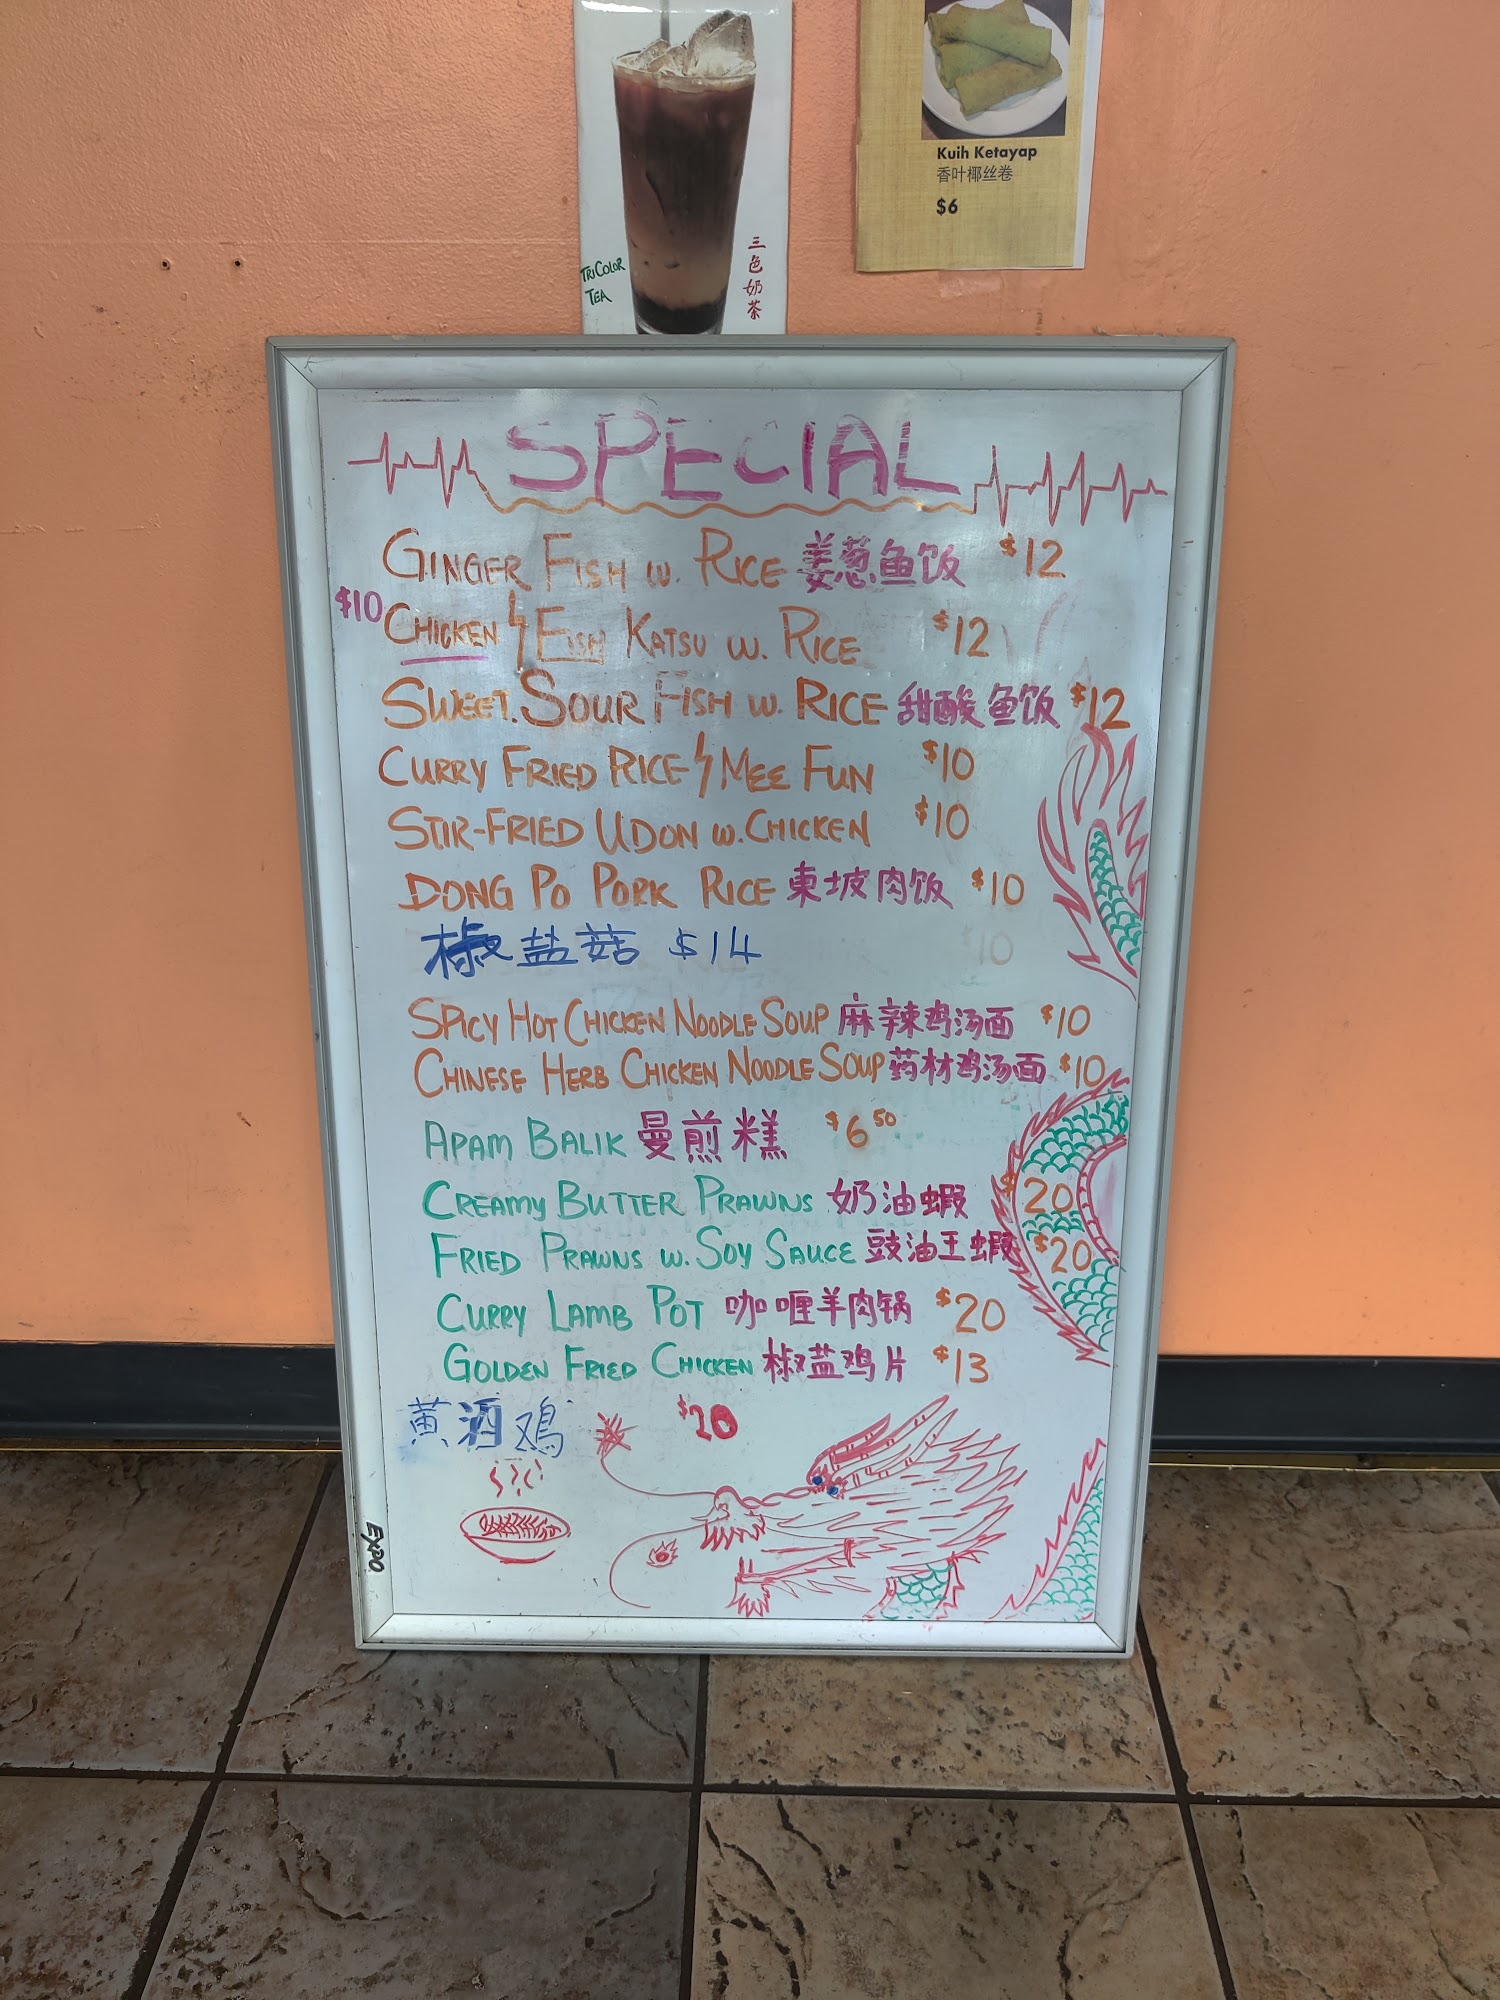 TRICOLOR
TEA
三色奶茶
Kuih Ketayap
香叶椰丝卷
$6
SPECIAL
GINGER FISH W. RICE 姜葱鱼饭 $12
$10 CHICKEN / FISH KATSU W. RICE $12
SWEET. SOUR FISH W. RICE 甜酸鱼饭 $12
CURRY FRIED RICE / MEE FUN $10
STIR-FRIED UDON W. CHICKEN $10
DONG PO PORK RICE 東坡肉饭 $10
椒盐菇 $14
$10
SPICY HOT CHICKEN NOODLE SOUP 麻辣鸡汤面 $10
CHINESE HERB CHICKEN NOODLE SOUP 药材鸡汤面 $10
APAM BALIK 曼煎糕 $6.50
CREAMY BUTTER PRAWNS 奶油蝦 $20
FRIED PRAWNS W. SOY SAUCE 豉油王蝦 $20
CURRY LAMB POT 咖喱羊肉锅 $20
GOLDEN FRIED CHICKEN 椒盐鸡片 $13
黄酒鸡 $20
EXPO